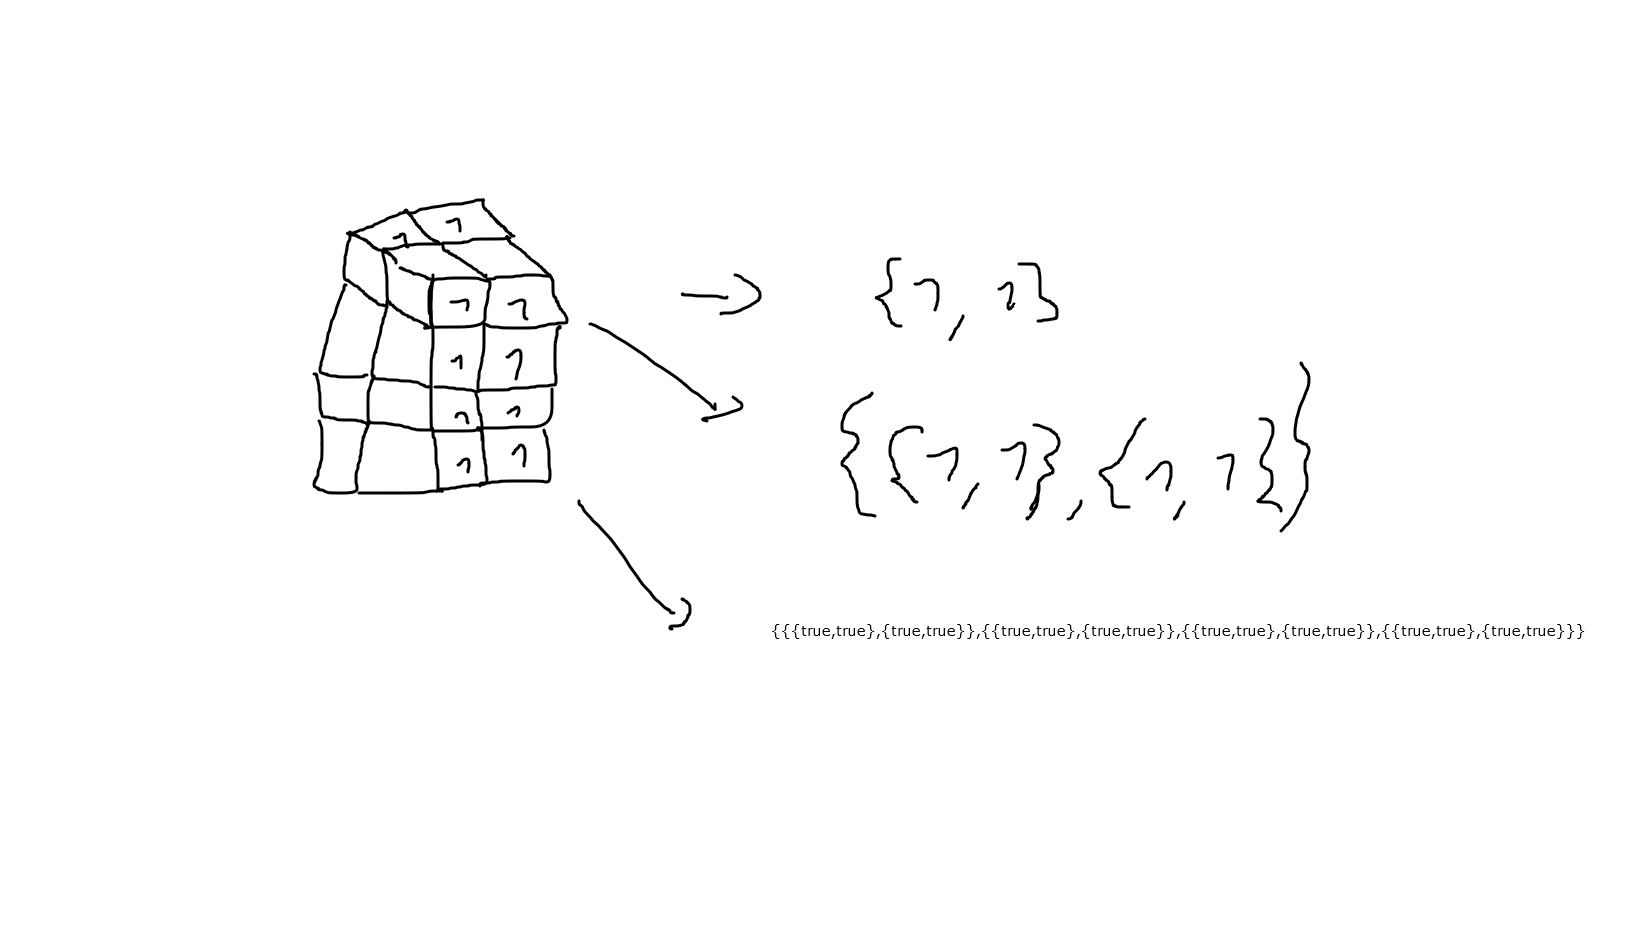 1 1
1 1
1 1
1 1
1 1
{1, 1}
{{1, 1}, {1, 1}}
{{{true,true},{true,true}},{{true,true},{true,true}},{{true,true},{true,true}},{{true,true},{true,true}}}